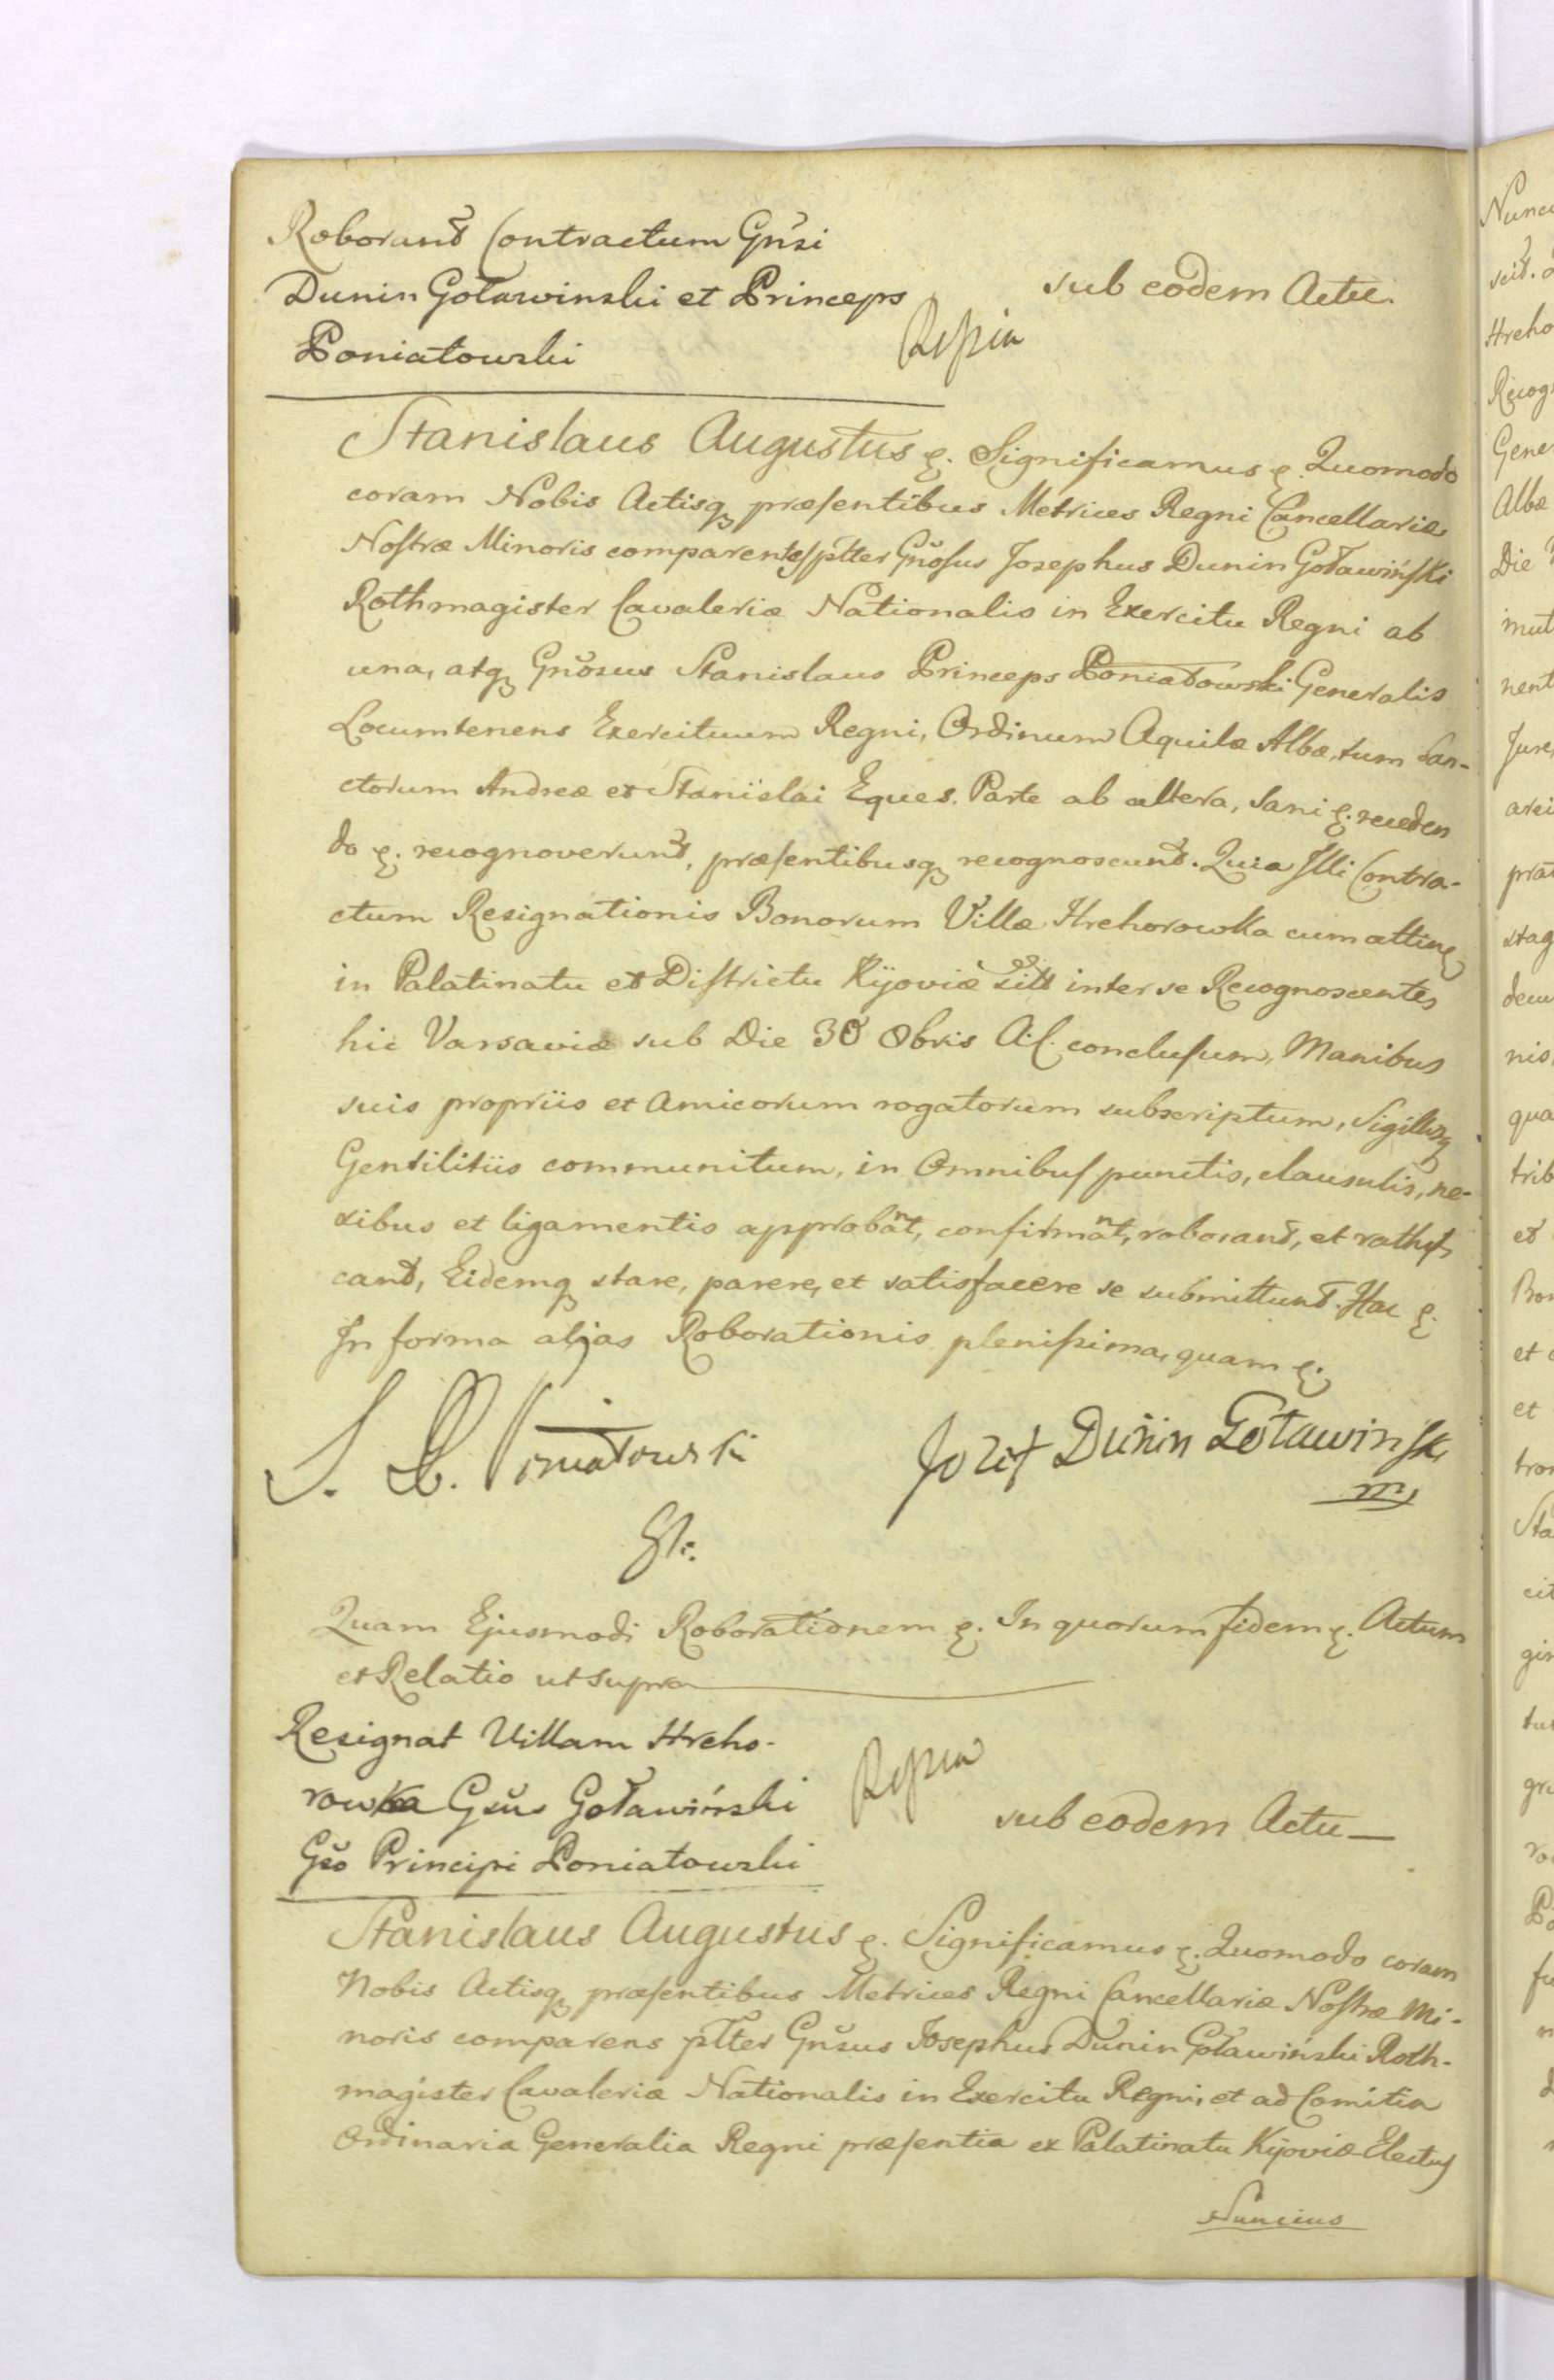 Roborant Contractum Gnsi
Dunin Goławinski et Princeps
Poniatowski
sub eodem Actu.
Stanislaus Augustus &. Significamus &. Quomodo
coram Nobis Actisq, præsentibus Metrices Regni Cancellariæ
Nostræ Minoris comparentes pltter Gnosus Josephus Dunin Goławiński
Rothmagister Cavaleriæ Nationalis in Exercitu Regni ab
una, atq, Gnosus Stanislaus Princeps Poniatowski Generalis
Locumtenens Exercituum Regni, Ordinum Aquilæ Albæ, tum San-
ctorum Andreæ et Stanislai Eques. Parte ab altera, Sani &. receden
do &. recognoverunt, præsentibusq, recognoscunt. Quia Illi Contra-
ctum Resignationis Bonorum Villæ Hrehorowka cum attinen
in Palatinatu et Districtu Kijoviæ sitt inter se Recognoscentes
hic Varsaviæ sub Die 30 8bris A. C. conclusum, Manibus
suis propriis et Amicorum rogatorum subscriptum, Sigillisq,
Gentilitiis communitum, in Omnibus punctis, clausulis, ne-
xibus et ligamentis approbant, confirmant, roborant, et rathifi
cant, Eidemq, stare, parere, et satisfacere se submittunt. Hac &.
In forma alias Roborationis plenissima, quam &.
S. P. Poniatowski
Józef Dunin Goławinski
mp
Quam Ejusmodi Roborationem &. In quorum fidem &. Actum
et Relatio ut supra
Resignat Villam Hreho-
rowka Gsus Goławiński
Gso Principi Poniatowski
sub eodem Actu
Stanislaus Augustus &. Significamus &. Quomodo coram
Nobis Actisq, præsentibus Metrices Regni Cancellariæ Nostræ Mi-
noris comparens pltter Gnsus Josephus Dunin Goławiński Roth-
magister Cavaleriæ Nationalis in Exercitu Regni, et ad Comitia
Ordinaria Generalia Regni præsentia ex Palatinatu Kijoviæ Electus
Nuncius